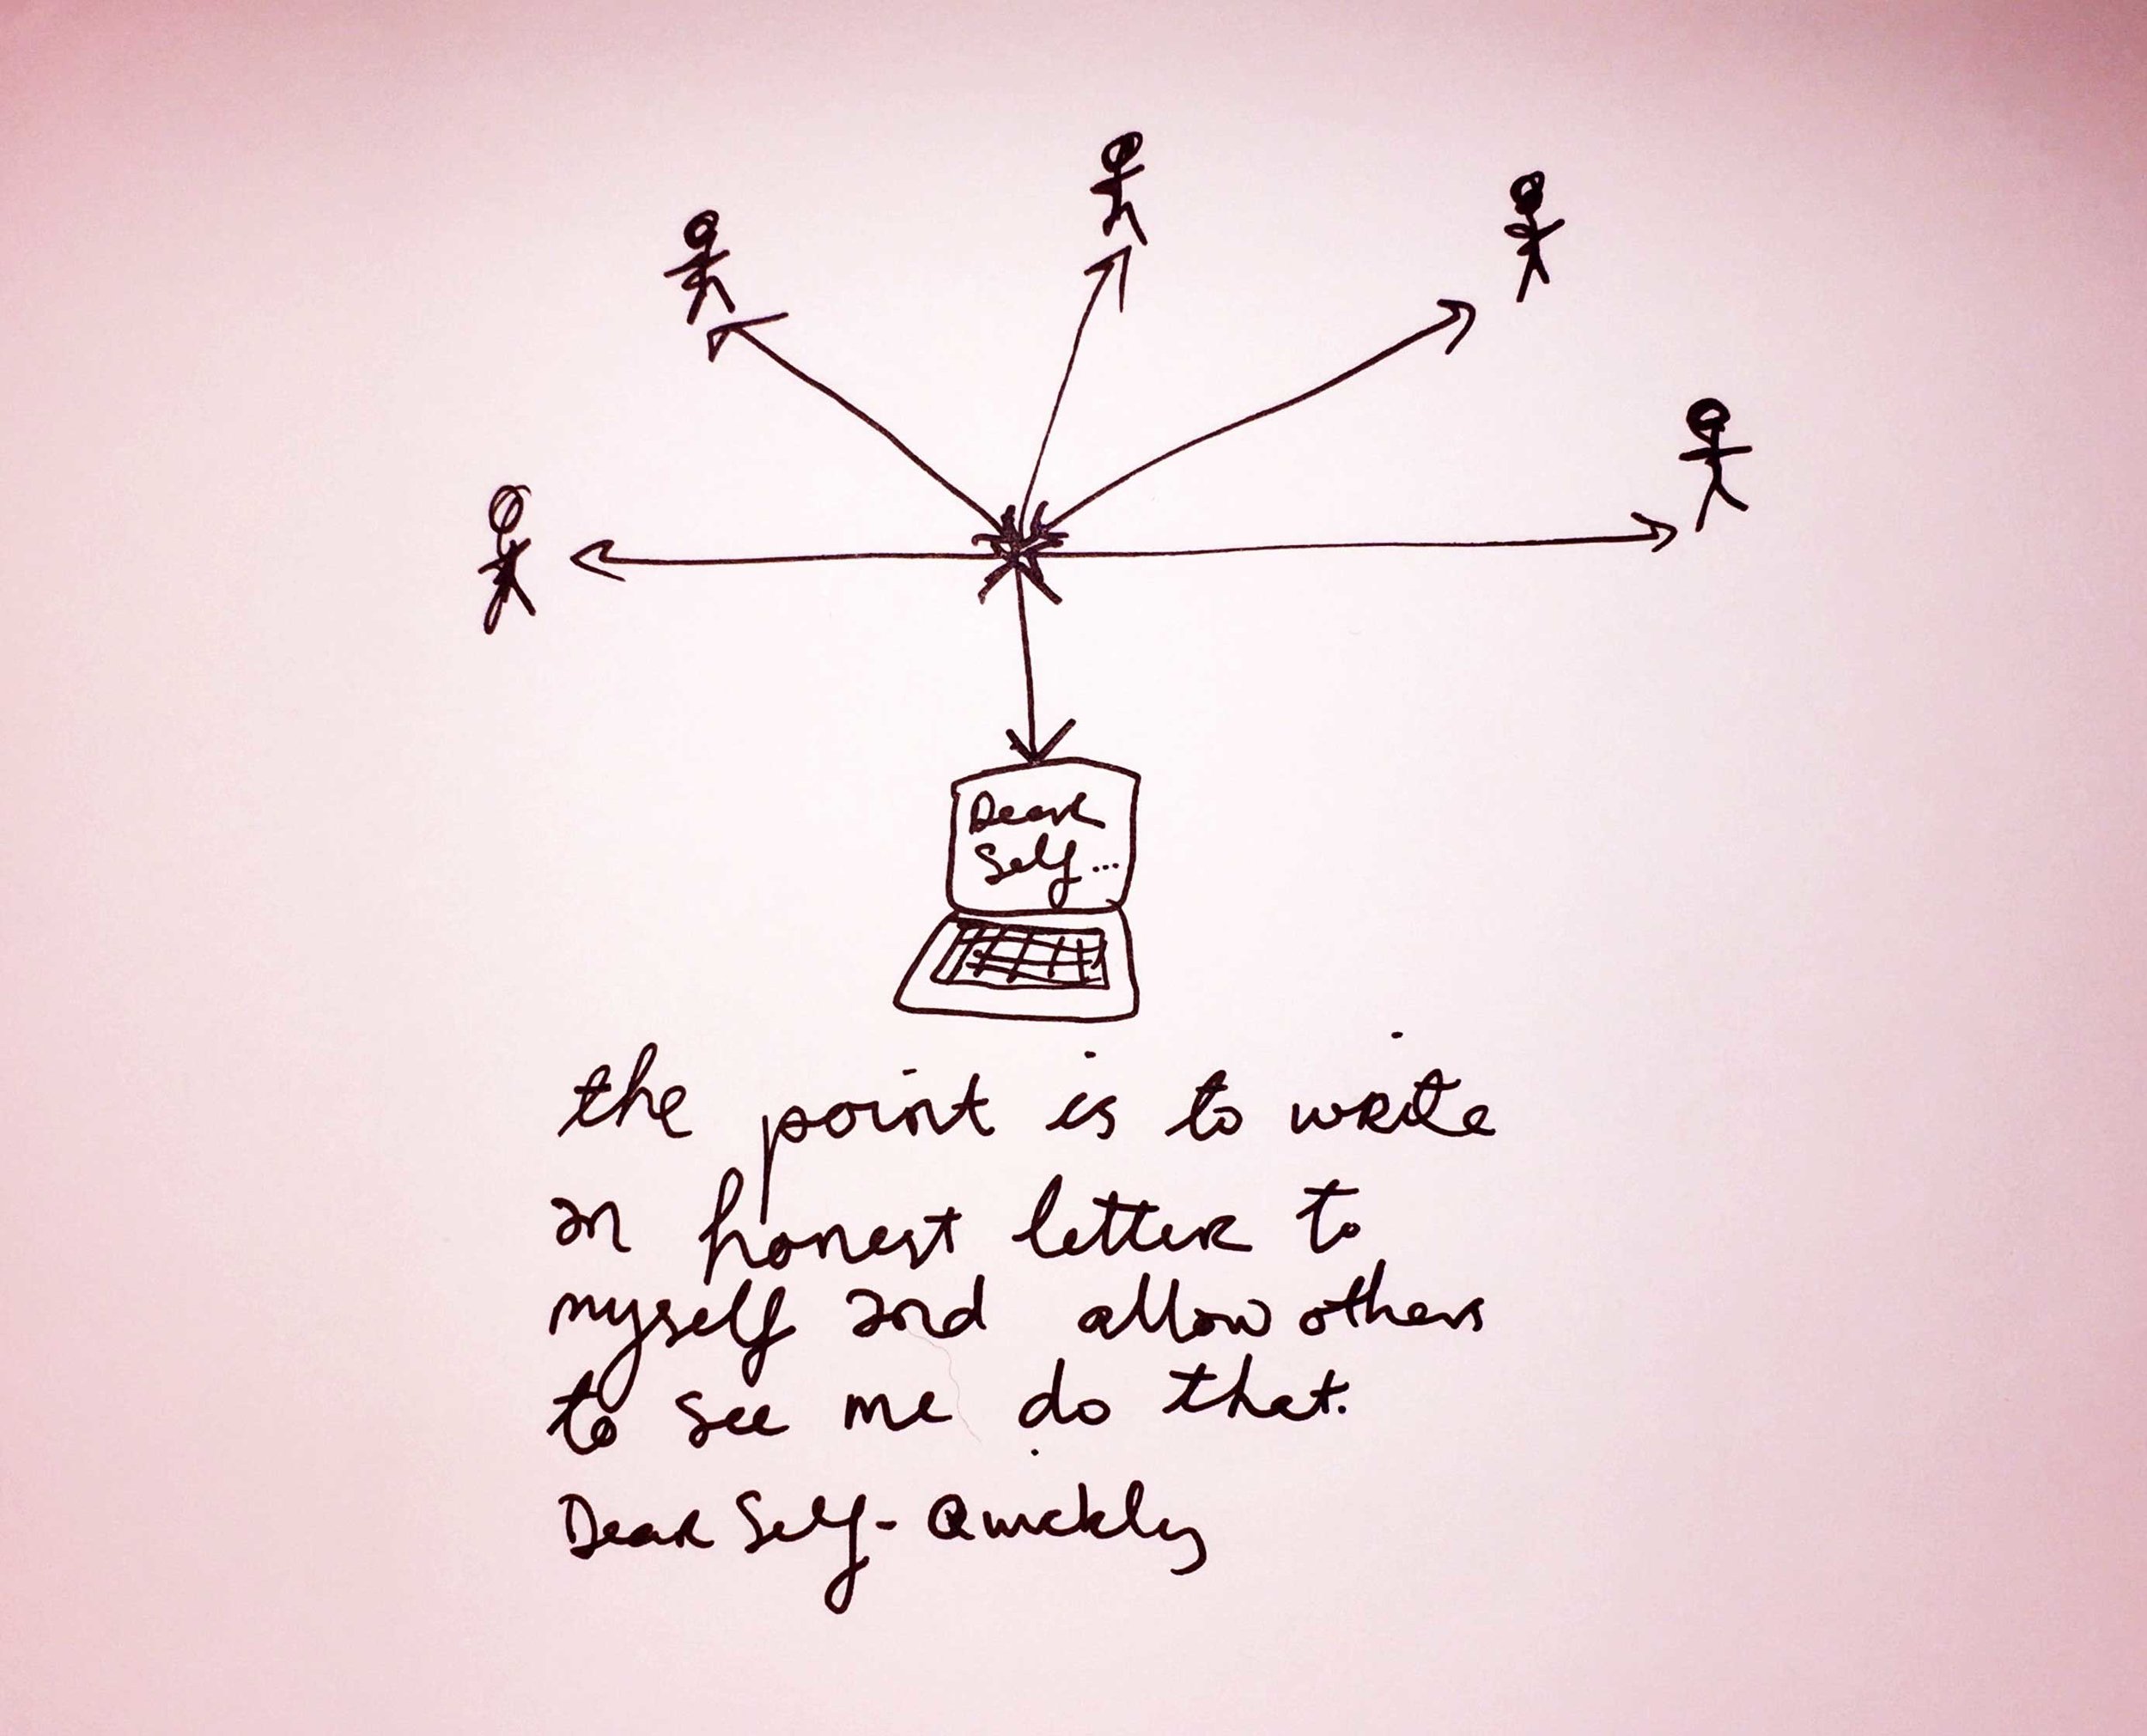 Dear
Self...
the point is to write
an honest letter to
myself and allow others
to see me do that.
Dear Self - Quickly